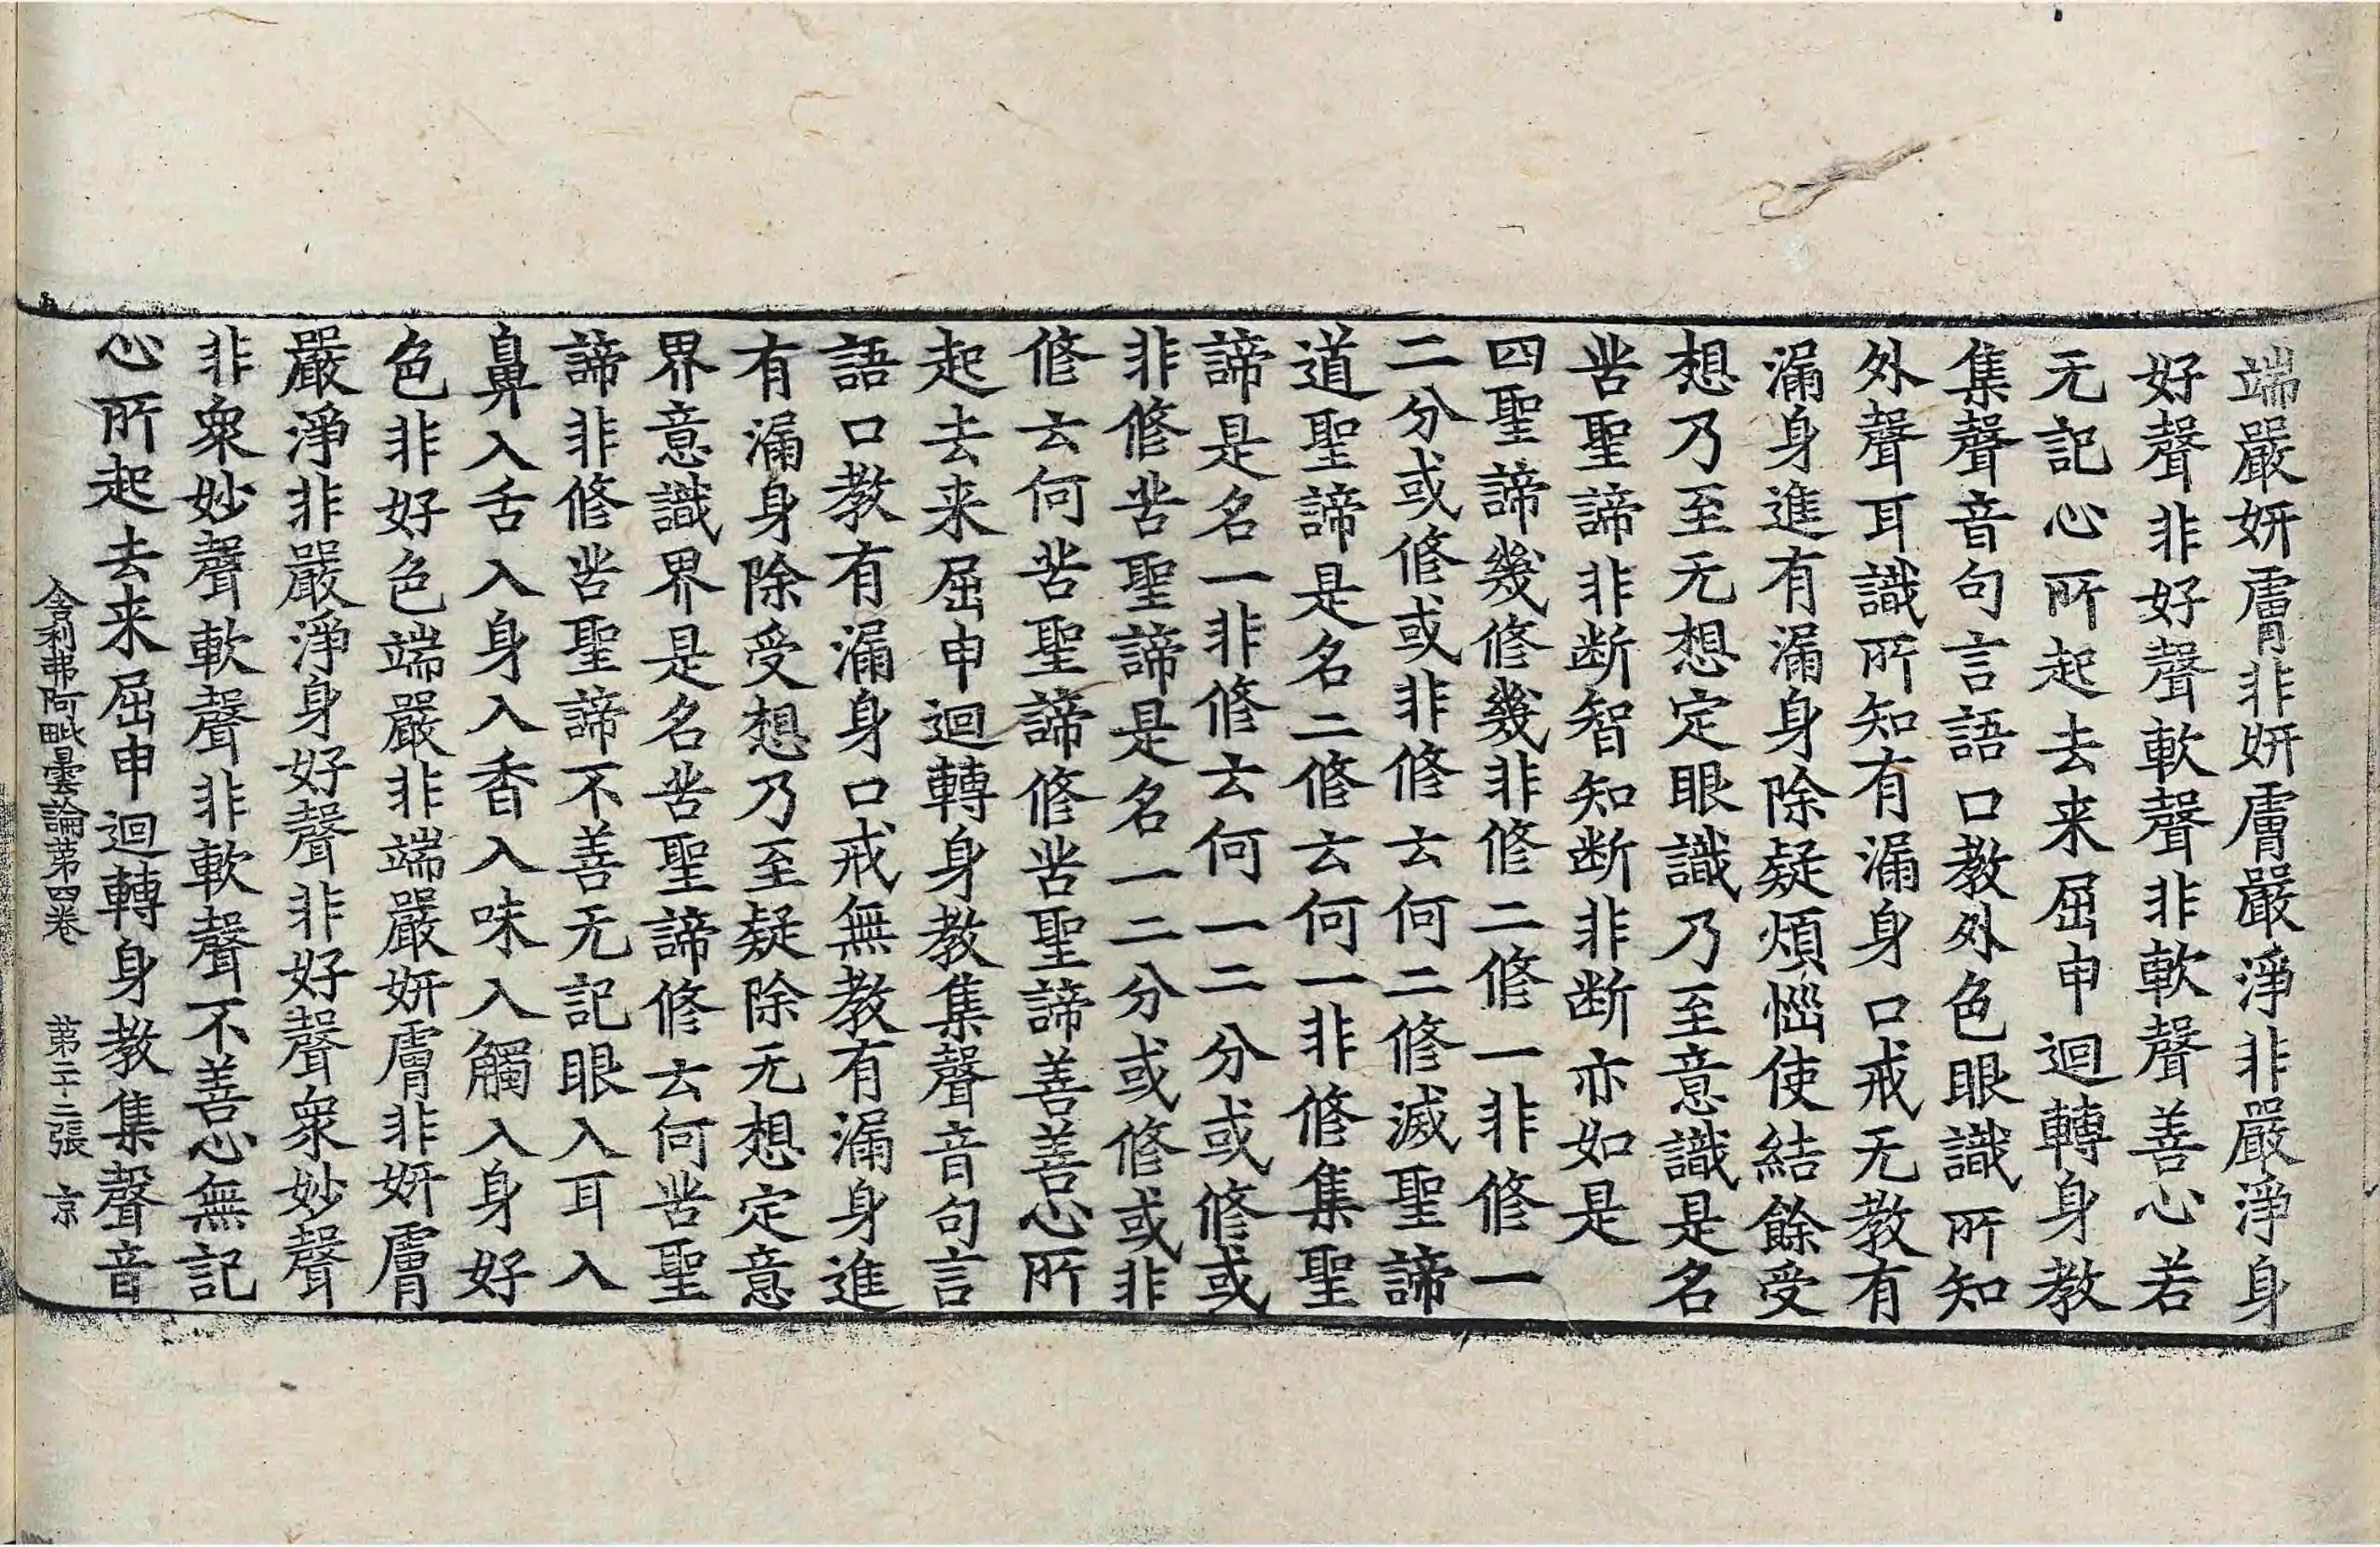 端嚴姸膚非姸膚嚴淨非嚴淨身
好聲非好聲軟聲非軟聲善心若
无記心所起去来屈申迴轉身教
集聲音句言語口教外色眼識所知
外聲耳識所知有漏身口戒无教有
漏身進有漏身除疑煩惱使結餘受
想乃至无想定眼識乃至意識是名
苦聖諦非断智知断非断亦如是
四聖諦幾修幾非修二修一非修一
二分或修或非修云何二修滅聖諦
道聖諦是名二修云何一非修集聖
諦是名一非修云何一二分或修或
非修苦聖諦是名一二分或修或非
修云何苦聖諦修苦聖諦善善心所
起去来屈申迴轉身教集聲音句言
語口教有漏身口戒無教有漏身進
有漏身除受想乃至疑除无想定意
界意識界是名苦聖諦修云何苦聖
諦非修苦聖諦不善无記眼入耳入
鼻入舌入身入香入味入觸入身好
色非好色端嚴非端嚴姸膚非姸膚
嚴淨非嚴淨身好聲非好聲衆妙聲
非衆妙聲軟聲非軟聲不善心無記
心所起去来屈申迴轉身教集聲音
舍利弗阿毗曇論苐四卷 苐二十二張 京